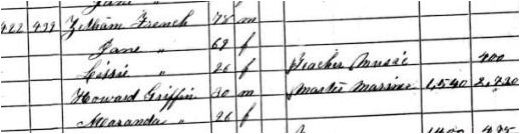 Jane "
422 439 Zetham French 78 m
Jane " 69 f
Lissie " 26 f Teacher Music 400
Howard Griffin 30 m Master Mariner 1,540 2,730
Maranda " 26 f